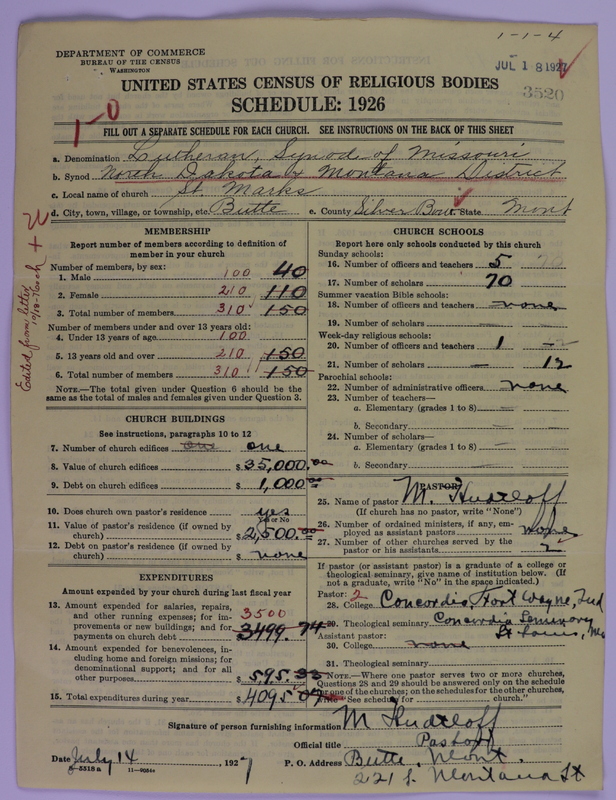 1-1-4
DEPARTMENT OF COMMERCE
BUREAU OF THE CENSUS
WASHINGTON
JUL 18 1927
3520
UNITED STATES CENSUS OF RELIGIOUS BODIES
SCHEDULE: 1926
1-0
FILL OUT A SEPARATE SCHEDULE FOR EACH CHURCH. SEE INSTRUCTIONS ON THE BACK OF THIS SHEET
a. Denomination Lutheran, Synod of Missouri
b. Synod North Dakota & Montana District
c. Local name of church St. Marks
d. City, town, village, or township, etc. Butte e. County Silver Bow State Mont
Edited from letter 10/18-76
MEMBERSHIP
Report number of members according to definition of member in your church
Number of members, by sex:
1. Male 100 40
2. Female 210 110
3. Total number of members 310 150
Number of members under and over 13 years old:
4. Under 13 years of age 100
5. 13 years old and over 210 150
6. Total number of members 310 150
NOTE.—The total given under Question 6 should be same as the total of males and females given under Question 3.
CHURCH BUILDINGS
See instructions, paragraphs 10 to 12
7. Number of church edifices one one
8. Value of church edifices $35,000.00
9. Debt on church edifices $1,000.00
10. Does church own pastor's residence yes
Yes or No
11. Value of pastor's residence (if owned by church) $2,500.00
12. Debt on pastor's residence (if owned by church) $ none
EXPENDITURES
Amount expended by your church during last fiscal year
13. Amount expended for salaries, repairs, and other running expenses; for improvements or new buildings; and for payments on church debt 3500 $3499.74
14. Amount expended for benevolences, including home and foreign missions; for denominational support; and for all other purposes $595.33
15. Total expenditures during year $4095.07
CHURCH SCHOOLS
Report here only schools conducted by this church
Sunday schools:
16. Number of officers and teachers 5
17. Number of scholars 70
Summer vacation Bible schools:
18. Number of officers and teachers none
19. Number of scholars
Week-day religious schools:
20. Number of officers and teachers 1
21. Number of scholars 12
Parochial schools:
22. Number of administrative officers none
23. Number of teachers—
a. Elementary (grades 1 to 8)
b. Secondary
24. Number of scholars—
a. Elementary (grades 1 to 8)
b. Secondary
PASTOR
25. Name of pastor M. Hudtloff
(If church has no pastor, write "None")
26. Number of ordained ministers, if any, employed as assistant pastors none
27. Number of other churches served by the pastor or his assistants 2
If pastor (or assistant pastor) is a graduate of a college or theological seminary, give name of institution below. (If not a graduate, write "No" in the space indicated.)
Pastor: 2
28. College Concordia, Fort Wayne, Ind
29. Theological seminary Concordia Seminary
St Louis, Mo
Assistant pastor:
30. College none
31. Theological seminary
NOTE.—Where one pastor serves two or more churches, Questions 28 and 29 should be answered only on the schedule for one of the churches; on the schedules for the other churches, write "See schedule for church."
Signature of person furnishing information M Hudtloff
Official title Pastor
Date July 14, 1927 P. O. Address Butte, Mont.
8-5518 a
221 S. Montana St